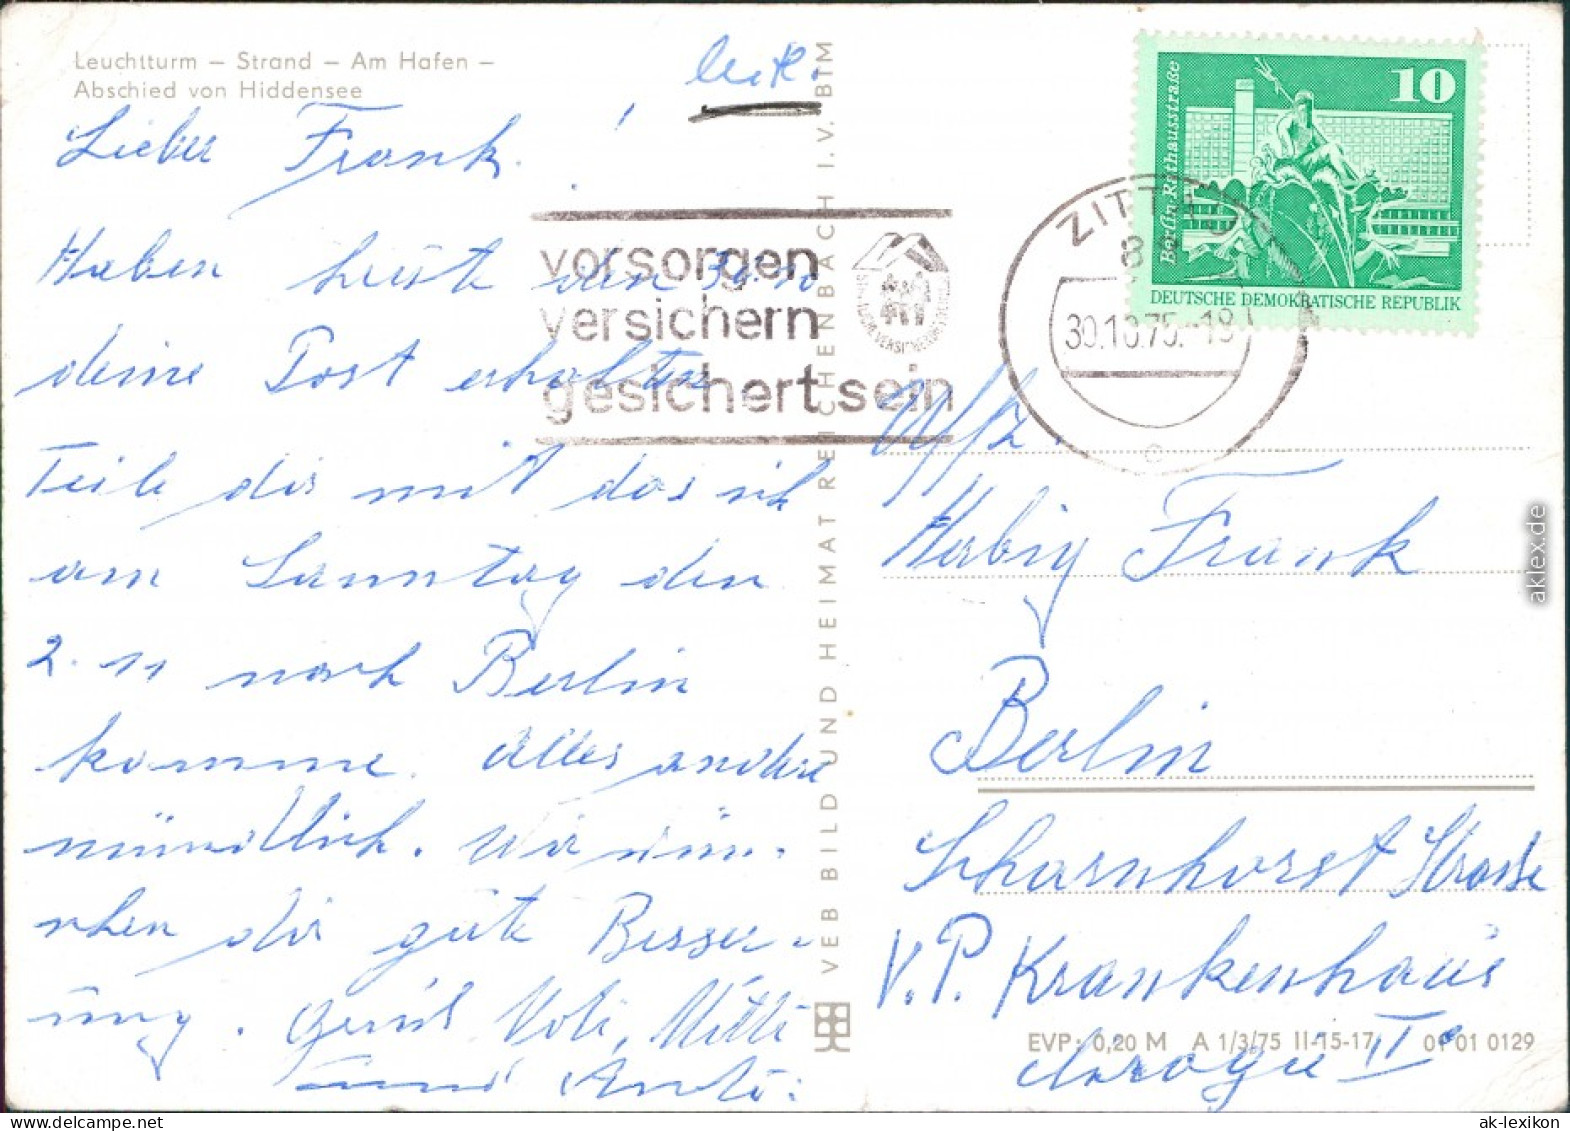 Leuchtturm – Strand – Am Hafen –
Abschied von Hiddensee
Lieber Frank!
Haben heute den 30.10
deine Post erhalten
Teile dir mit das ich
am Sanntag den
2.11 nach Berlin
komme. Alles andere
mündlich. Wir wün-
schen dir gute Besser-
ung. Gruß Vati, Mutti
und
VEB BILD UND HEIMAT REICHENBACH I.V. BTM
vorsorgen
versichern
gesichert sein
ZITTAU
30.10.75.-18
c
10
Berlin Rathausstraße
DEUTSCHE DEMOKRATISCHE REPUBLIK
Uffz.
Herbig Frank
Berlin
Scharnhorst Strasse
V.P. Krankenhaus
EVP: 0,20 M A 1/3/75 II-15-17 01 01 0129
II
aklex.de
ak-lexikon